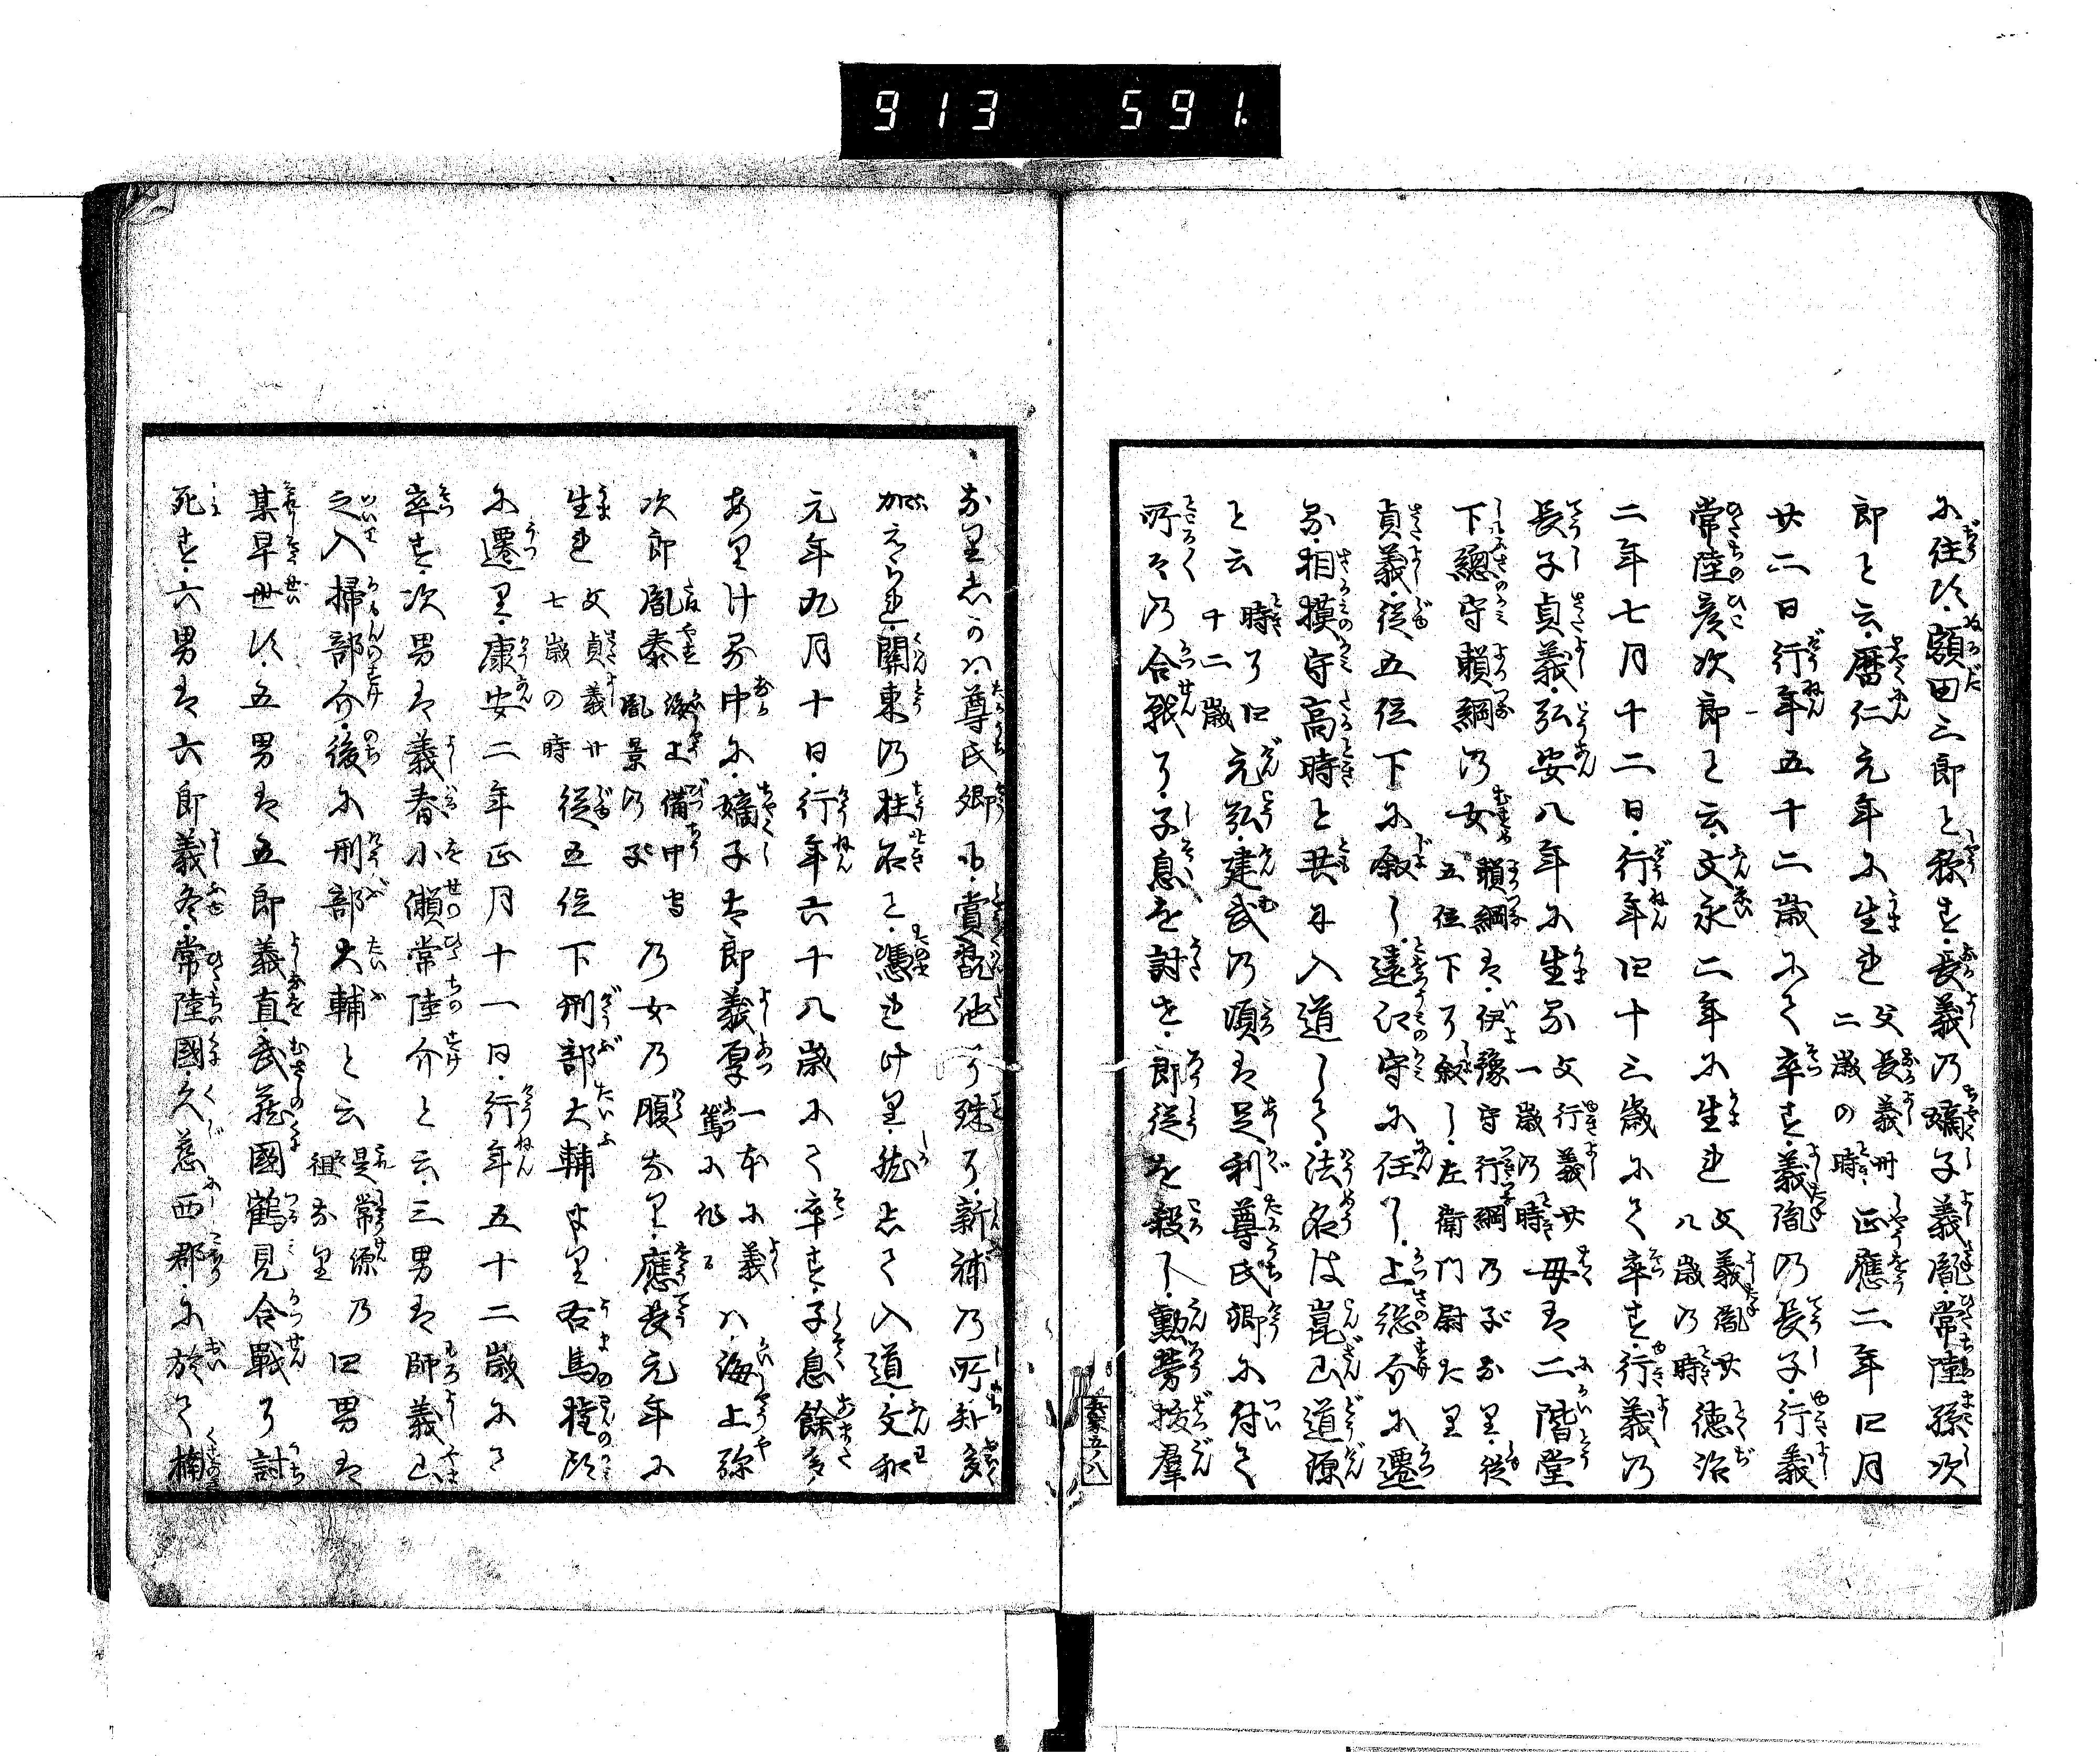 913 591.
に住し額田三郎と稱す長義の嫡子義胤常陸孫次
郎と云暦仁元年に生れ父長義卅二歳の時正應二年四月
廿二日行年五十二歳にて卒す義胤の長子行義
常陸彦次郎と云文永二年に生れ父義胤廿八歳の時徳治
二年七月十二日行年四十三歳にて卒す行義の
長子貞義弘安八年に生る父行義廿一歳の時母は二階堂
下總守頼綱の女頼綱は伊豫守行綱の子なり從五位下に叙し左衛門尉たり
貞義從五位下に叙し遠江守に任し上総介に遷
る相摸守高時と共に入道して法名は崑山道源
と云時に四十二歳元弘建武の頃は足利尊氏郷に付て
所々の合戦に子息を討せ郎従を殺し勲労抜羣
なりしかは尊氏郷の賞翫他に殊に新補の所知多
加えられ關東の柱石と憑れけり然して入道文和
元年九月十日行年六十八歳にて卒す子息餘多
ありける中に嫡子太郎義厚一本に義篤に作るハ海上弥
次郎胤泰海上備中守胤景の子乃女の腹なり應長元年に
生れ父貞義廿七歳の時従五位下刑部大輔より右馬権頭
に遷り康安二年正月十一日行年五十二歳にて
卒す次男は義春小瀬常陸介と云三男は師義山
之入掃部介後に刑部大輔と云是常源の祖なり四男は
某早世し五男は五郎義直武蔵國鶴見合戰に討
死す六男は六郎義冬常陸國久慈西郡に於て楠